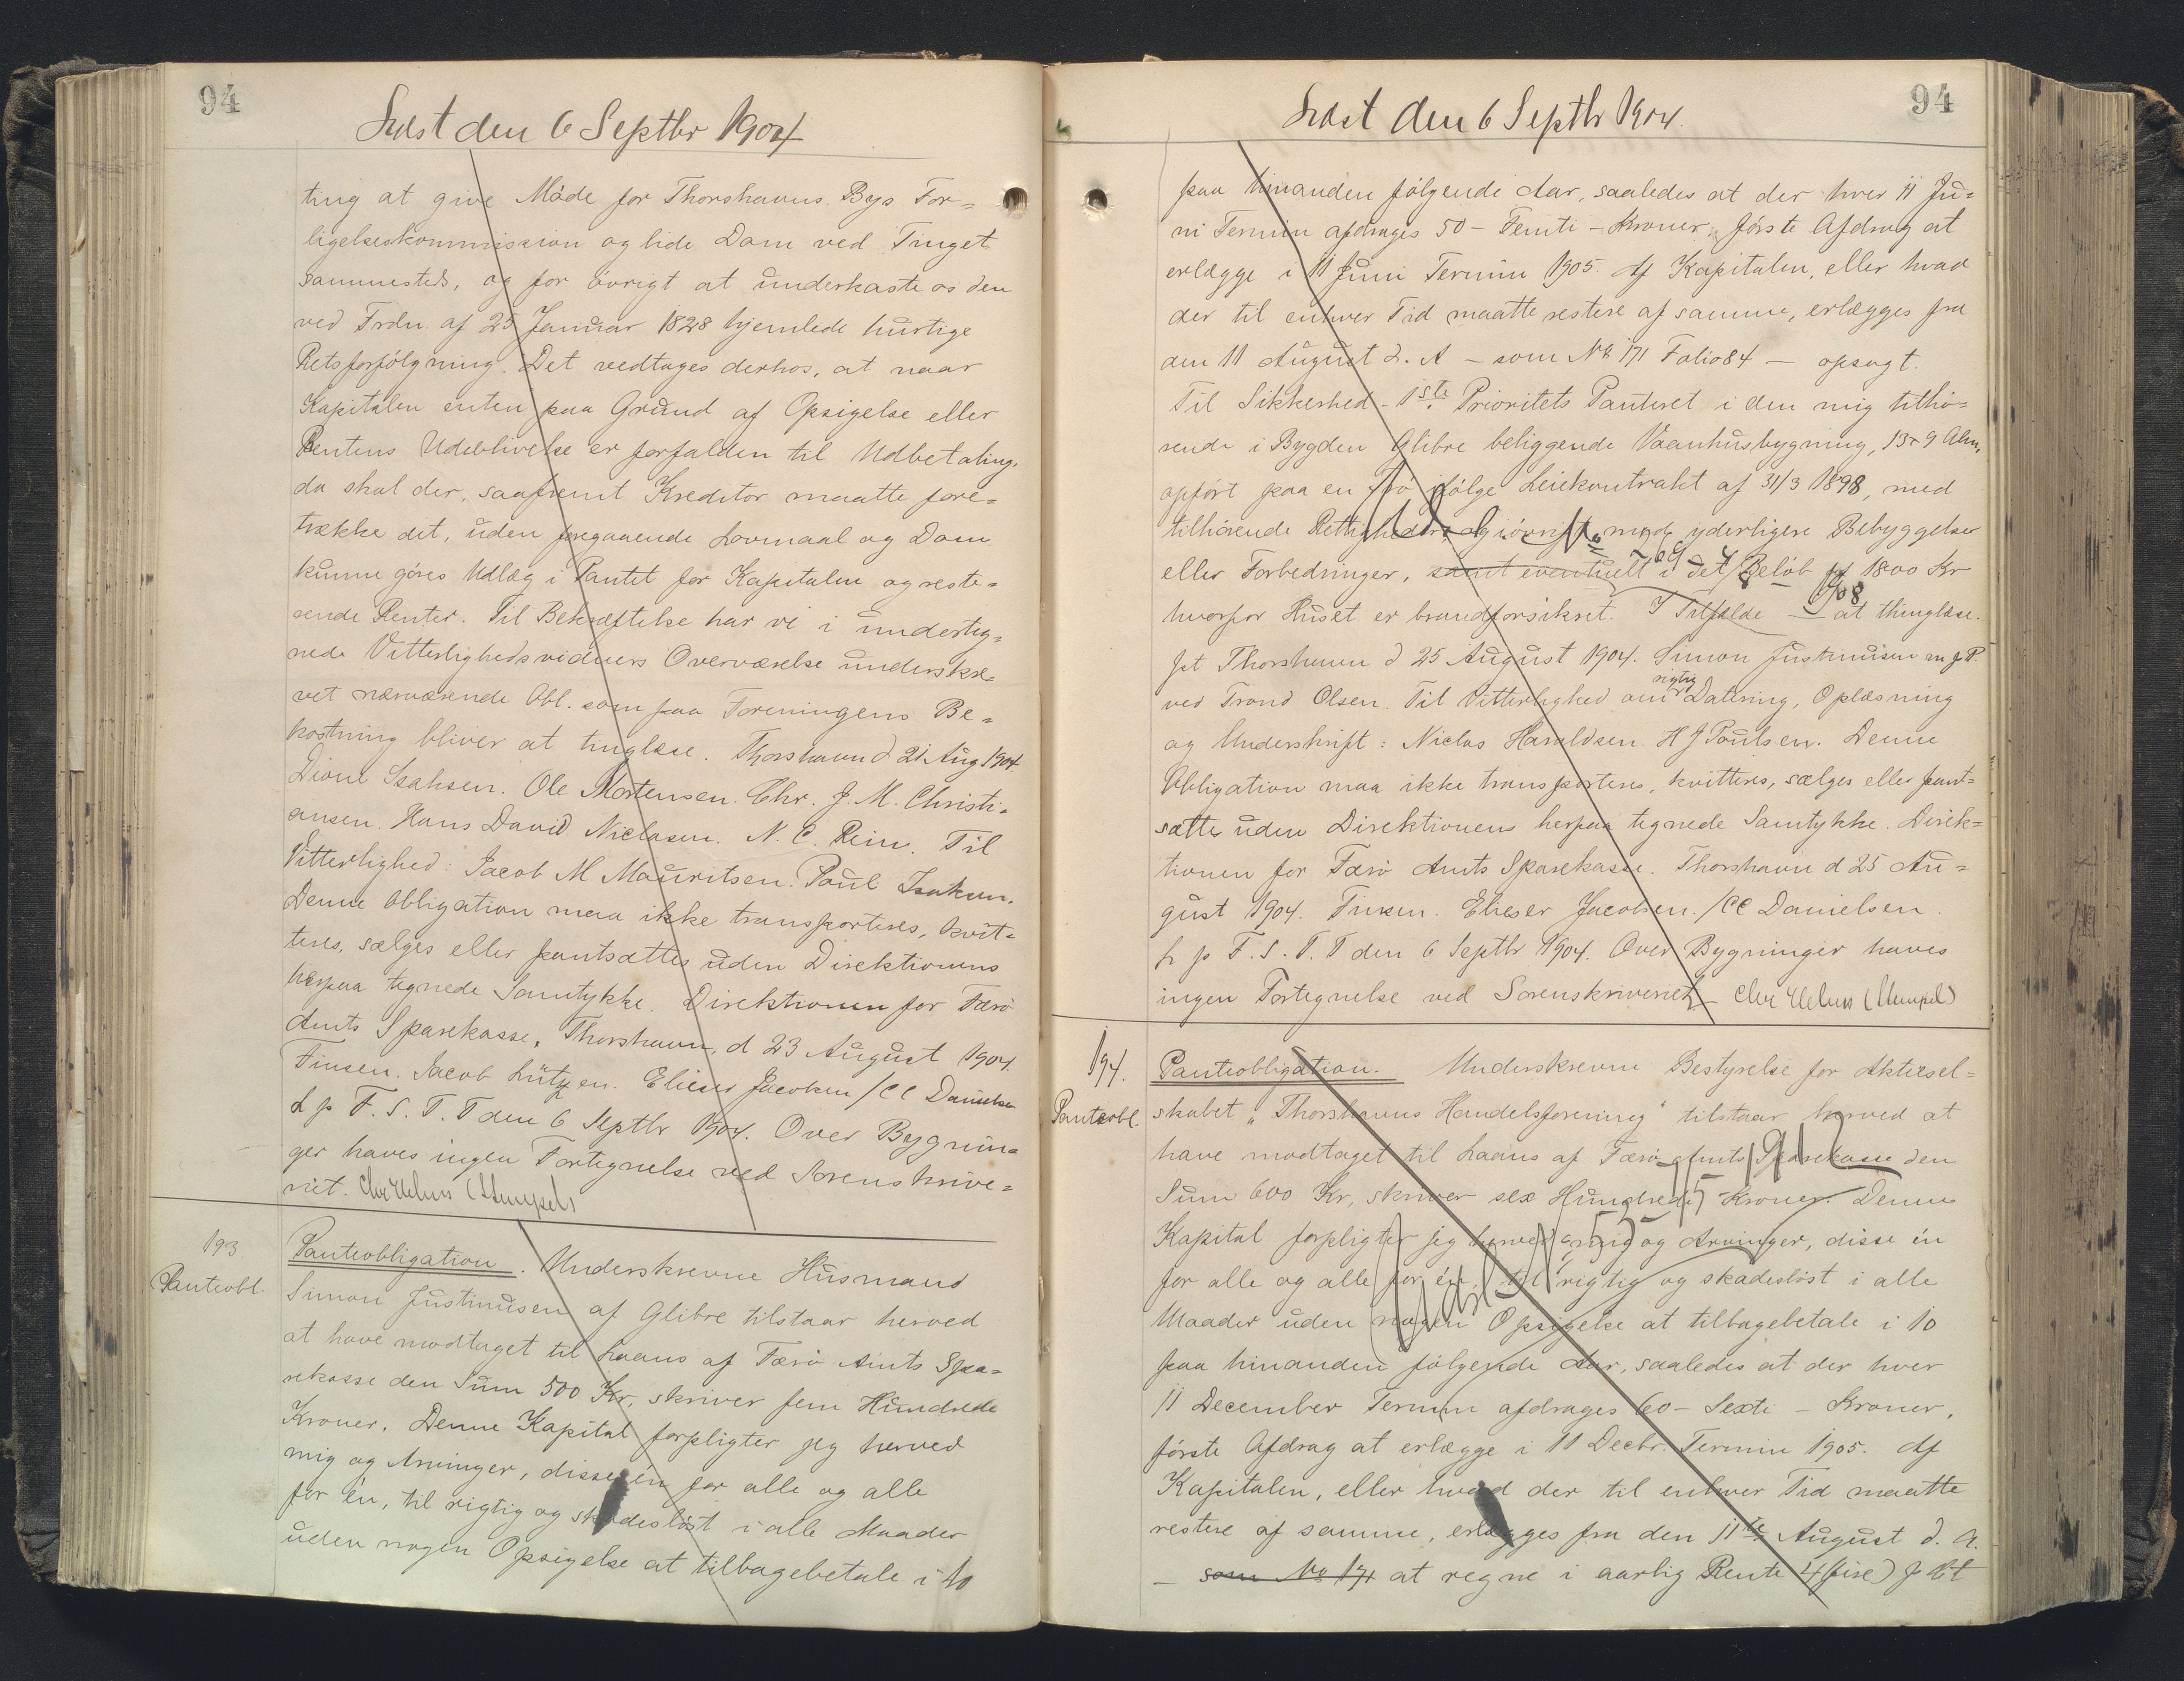 94
Læst den 6 Septbr 1904
ting at give Møde for Thorshavns Bys For=
ligelseskommission og lide Dom ved Tinget
sammesteds, og for øvrigt at underkaste os den
ved Frdn. af 25 Januar 1828 hjemlede hurtige
Retsforfølgning. Det vedtages derhos, at naar
Kapitalen enten paa Grund af Opsigelse eller
Rentens Udeblivelse er forfalden til Udbetaling,
da skal der, saafremt Kreditor maatte fore=
trække det, uden foregaaende Lovmaal og Dom
kunne gøres Udlæg i Pantet for Kapitalen og reste=
rende Renter. Til Bekræftelse har vi i underteg=
nede Vitterlighedsvidners Overværelse underskre=
vet nærværende Obl. som paa Foreningens Be=
kostning bliver at tinglæse. Thorshavn d 21 Aug 1904.
Dion Isaksen. Ole Mortensen. Chr. J. M. Christi=
ansen. Hans David Niclasen. N. C. Rein. Til
Vitterlighed: Jacob M Mauritsen. Poul Isaksen.
Denne Obligation maa ikke transporteres, kvit=
teres, sælges eller pantsættes uden Direktionens
herpaa tegnede Samtykke. Direktionen for Færø
Amts Sparekasse, Thorshavn, d 23 August 1904.
Finsen. Jacob Lützen. Elieser Jacobsen /CC Danielsen
L p F. S. T. T den 6 Septbr 1904. Over Bygnin=
ger haves ingen Fortegnelse ved Sorenskrive=
riet. (Stempel)
193.
Pantobl.
Panteobligation. Underskrevne Husmand
Simon Justinusen af Glibre tilstaar herved
at have modtaget til Laans af Færø Amts Spa=
rekasse den Sum 500 Kr, skriver fem Hundrede
Kroner. Denne Kapital forpligter jeg herved
mig og Arvinger, disse én for alle og alle
for én, til rigtig og skadesløst i alle Maader
uden nogen Opsigelse at tilbagebetale i 10
94
Læst den 6 Septbr 1904.
paa hinanden følgende Aar, saaledes at der hver 11 Ju=
ni Termin afdrages 50 – Femti – Kroner, første Afdrag at
erlægge i 11 Juni Termin 1905. Af Kapitalen, eller hvad
der til enhver Tid maatte restere af samme, erlægges fra
den 11 August d. A – som No 171 Folio 84 – opsagt.
Til Sikkerhed – 1ste Prioritets Panteret i den mig tilhø=
rende i Bygden Glibre beliggende Vaanhusbygning, 13 x 9 Alm,
opført paa en Trø ifølge Leiekontrakt af 31/3 1898, med
tilhørende Rettigheder og iøvrigt med yderligere Bebyggelser
eller Forbedringer, samt eventuelt i det Beløb af 1800 Kr
hvorfor Huset er brandforsikret. I Tilfælde — at thinglæse.
pt Thorshavn d 25 August 1904. Simon Justinusen m f P.
ved Trond Olsen. Til Vitterlighed om rigtig Datering, Oplæsning
og Underskrift: Niclas Haraldsen. H J Poulsen. Denne
Obligation maa ikke transporteres, kvitteres, sælges eller pant=
sættes uden Direktionens herpaa tegnede Samtykke. Direk=
tionen for Færø Amts Sparekasse. Thorshavn d 25 Au=
gust 1904. Finsen. Elieser Jacobsen. /CC Danielsen.
L p F. S. T. T den 6 Septbr 1904. Over Bygninger haves
ingen Fortegnelse ved Sorenskriveriet – (Stempel)
194.
Panteobl.
Panteobligation. Underskrevne Bestyrelse for Aktiesel=
skabet „Thorshavns Handelsforening" tilstaar herved at
have modtaget til Laans af Færø Amts Sparekasse den
Sum 600 Kr, skriver sex Hundrede Kroner. Denne
Kapital forpligter jeg herved mig og Arvinger, disse én
for alle og alle for én, til rigtig og skadesløst i alle
Maader uden nogen Opsigelse at tilbagebetale i 10
paa hinanden følgende Aar, saaledes at der hver
11 December Termin afdrages 60 – Sexti – Kroner,
første Afdrag at erlægge i 11 Decbr. Termin 1905. Af
Kapitalen, eller hvad der til enhver Tid maatte
restere af samme, erlægges fra den 11te August d. A.
– som No 171 at regne i aarlig Rente 4 (fire) p Ct